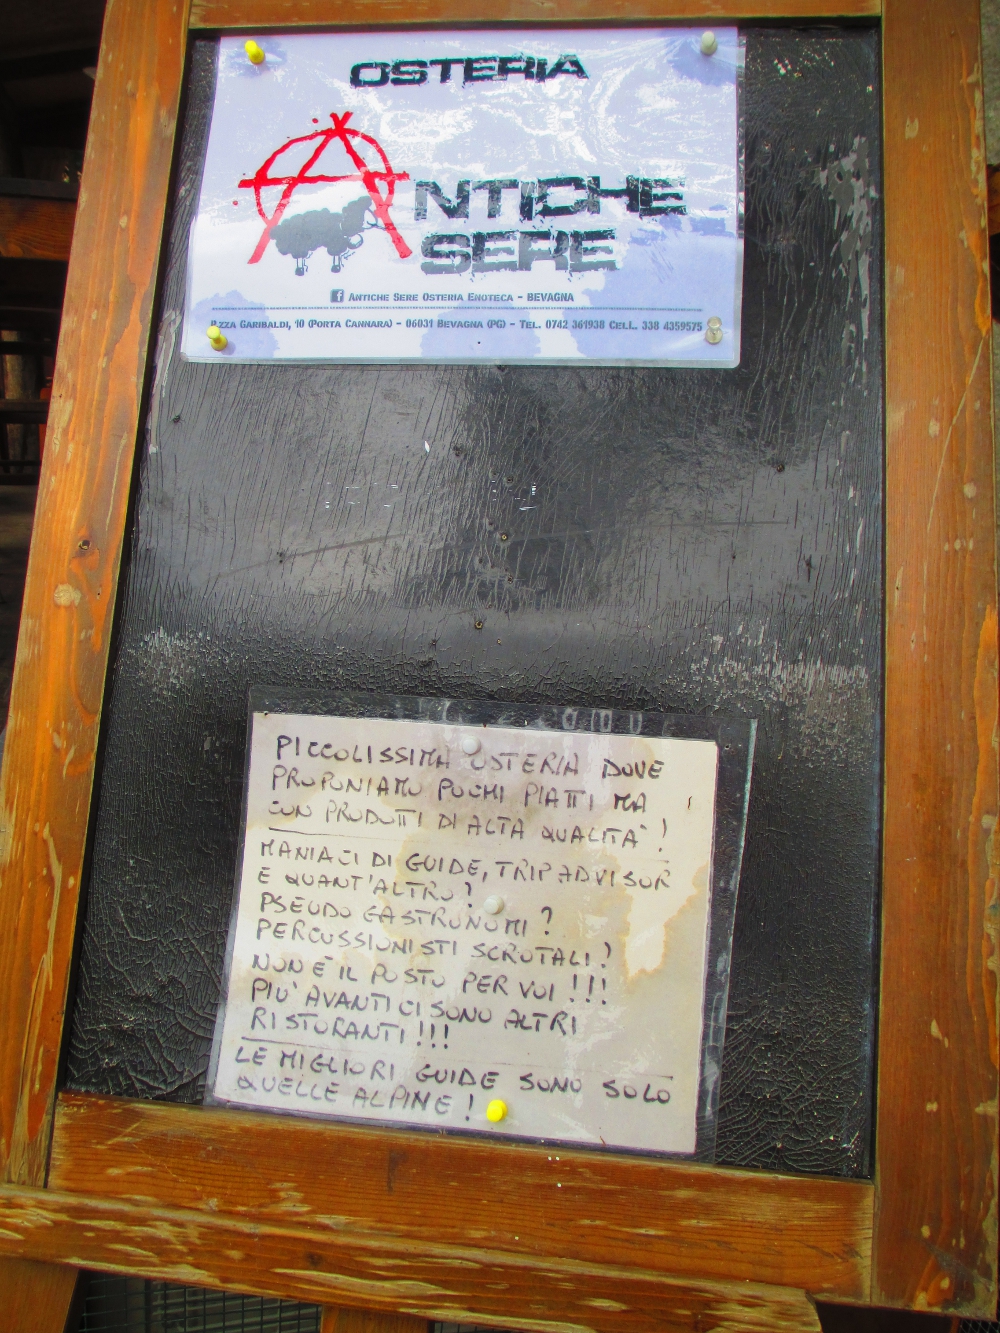 OSTERIA
ANTICHE
SERE
f ANTICHE SERE OSTERIA ENOTECA - BEVAGNA
P.ZZA GARIBALDI, 10 (PORTA CANNARA) - 06031 BEVAGNA (PG) - TEL. 0742 361938 CELL. 338 4359575
PICCOLISSIMA OSTERIA DOVE
PROPONIAMO POCHI PIATTI MA
CON PRODOTTI DI ALTA QUALITA' !
MANIACI DI GUIDE, TRIPADVISOR
E QUANT'ALTRO ?
PSEUDO GASTRONOMI ?
PERCUSSIONISTI SCROTALI ?
NON È IL POSTO PER VOI !!!
PIU' AVANTI CI SONO ALTRI
RISTORANTI !!!
LE MIGLIORI GUIDE SONO SOLO
QUELLE ALPINE !